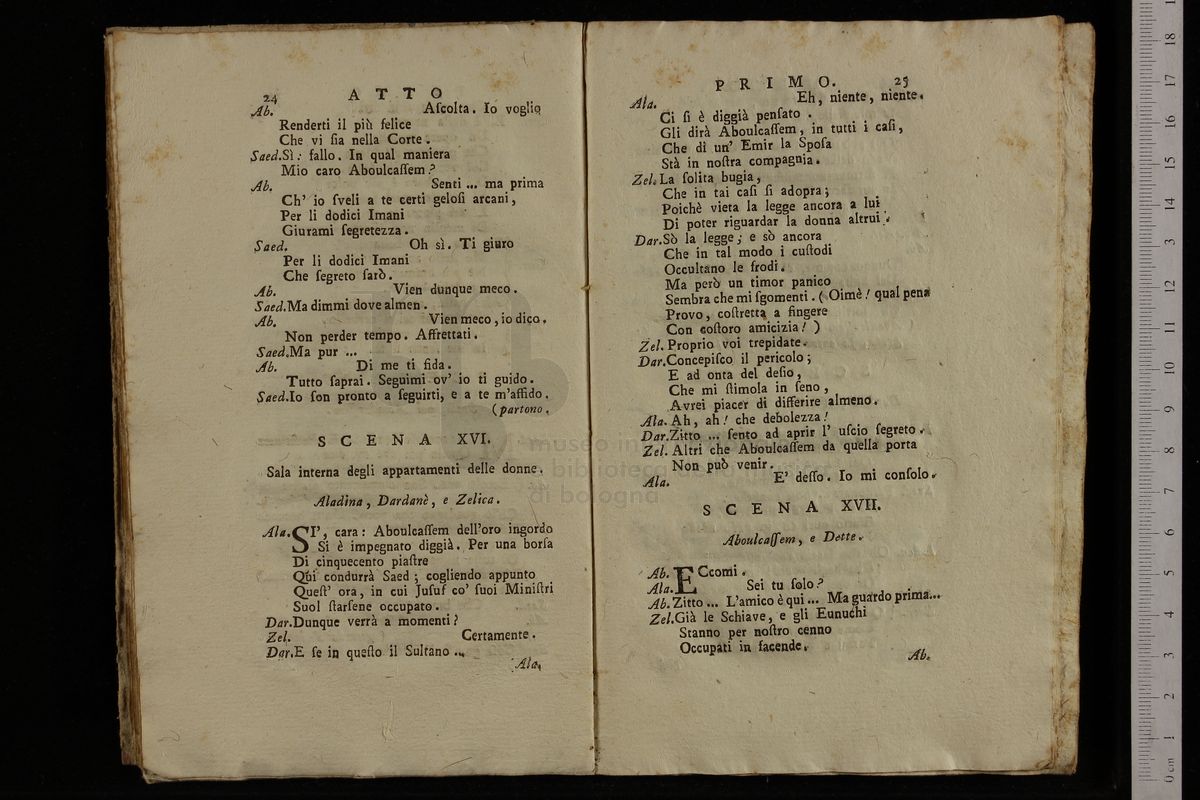 24 ATTO
Ab. Aſcolta. Io voglio
Renderti il più felice
Che vi ſia nella Corte.
Saed.Sì: fallo. In qual maniera
Mio caro Aboulcaſſem?
Ab. Senti ... ma prima
Ch' io ſveli a te certi geloſi arcani,
Per li dodici Imani
Giurami ſegretezza.
Saed. Oh sì. Ti giuro
Per li dodici Imani
Che ſegreto ſarò.
Ab. Vien dunque meco.
Saed.Ma dimmi dove almen.
Ab. Vien meco, io dico.
Non perder tempo. Affrettati.
Saed.Ma pur ...
Ab. Di me ti fida.
Tutto ſaprai. Seguimi ov' io ti guido.
Saed.Io ſon pronto a ſeguirti, e a te m'affido.
(partono.
SCENA XVI.
Sala interna degli appartamenti delle donne.
Aladina, Dardanè, e Zelica.
Ala.SI', cara: Aboulcaſſem dell'oro ingordo
Si è impegnato diggià. Per una borſa
Di cinquecento piaſtre
Quì condurrà Saed; cogliendo appunto
Queſt' ora, in cui Juſuf co' ſuoi Miniſtri
Suol ſtarſene occupato.
Dar.Dunque verrà a momenti?
Zel. Certamente.
Dar.E ſe in queſto il Sultano ...
Ala.
PRIMO. 25
Ala. Eh, niente, niente.
Ci ſi è diggià penſato.
Gli dirà Aboulcaſſem, in tutti i caſi,
Che di un' Emir la Spoſa
Stà in noſtra compagnia.
Zel.La ſolita bugia,
Che in tai caſi ſi adopra;
Poichè vieta la legge ancora a lui
Di poter riguardar la donna altrui.
Dar.Sò la legge; e sò ancora
Che in tal modo i cuſtodi
Occultano le frodi.
Ma però un timor panico
Sembra che mi ſgomenti. (Oimè! qual pena
Provo, coſtretta a fingere
Con coſtoro amicizia!)
Zel. Proprio voi trepidate.
Dar.Concepiſco il pericolo;
E ad onta del deſio,
Che mi ſtimola in ſeno,
Avrei piacer di differire almeno.
Ala. Ah, ah! che debolezza!
Dar.Zitto ... ſento ad aprir l' uſcio ſegreto.
Zel. Altri che Aboulcaſſem da quella porta
Non può venir.
Ala. E' deſſo. Io mi conſolo.
SCENA XVII.
Aboulcaſſem, e Dette.
Ab. ECcomi.
Ala. Sei tu ſolo?
Ab.Zitto ... L'amico è quì ... Ma guardo prima...
Zel.Già le Schiave, e gli Eunuchi
Stanno per noſtro cenno
Occupati in facende.
Ab.
0 cm 1 2 3 4 5 6 7 8 9 10 11 12 13 14 15 16 17 18
di bologna